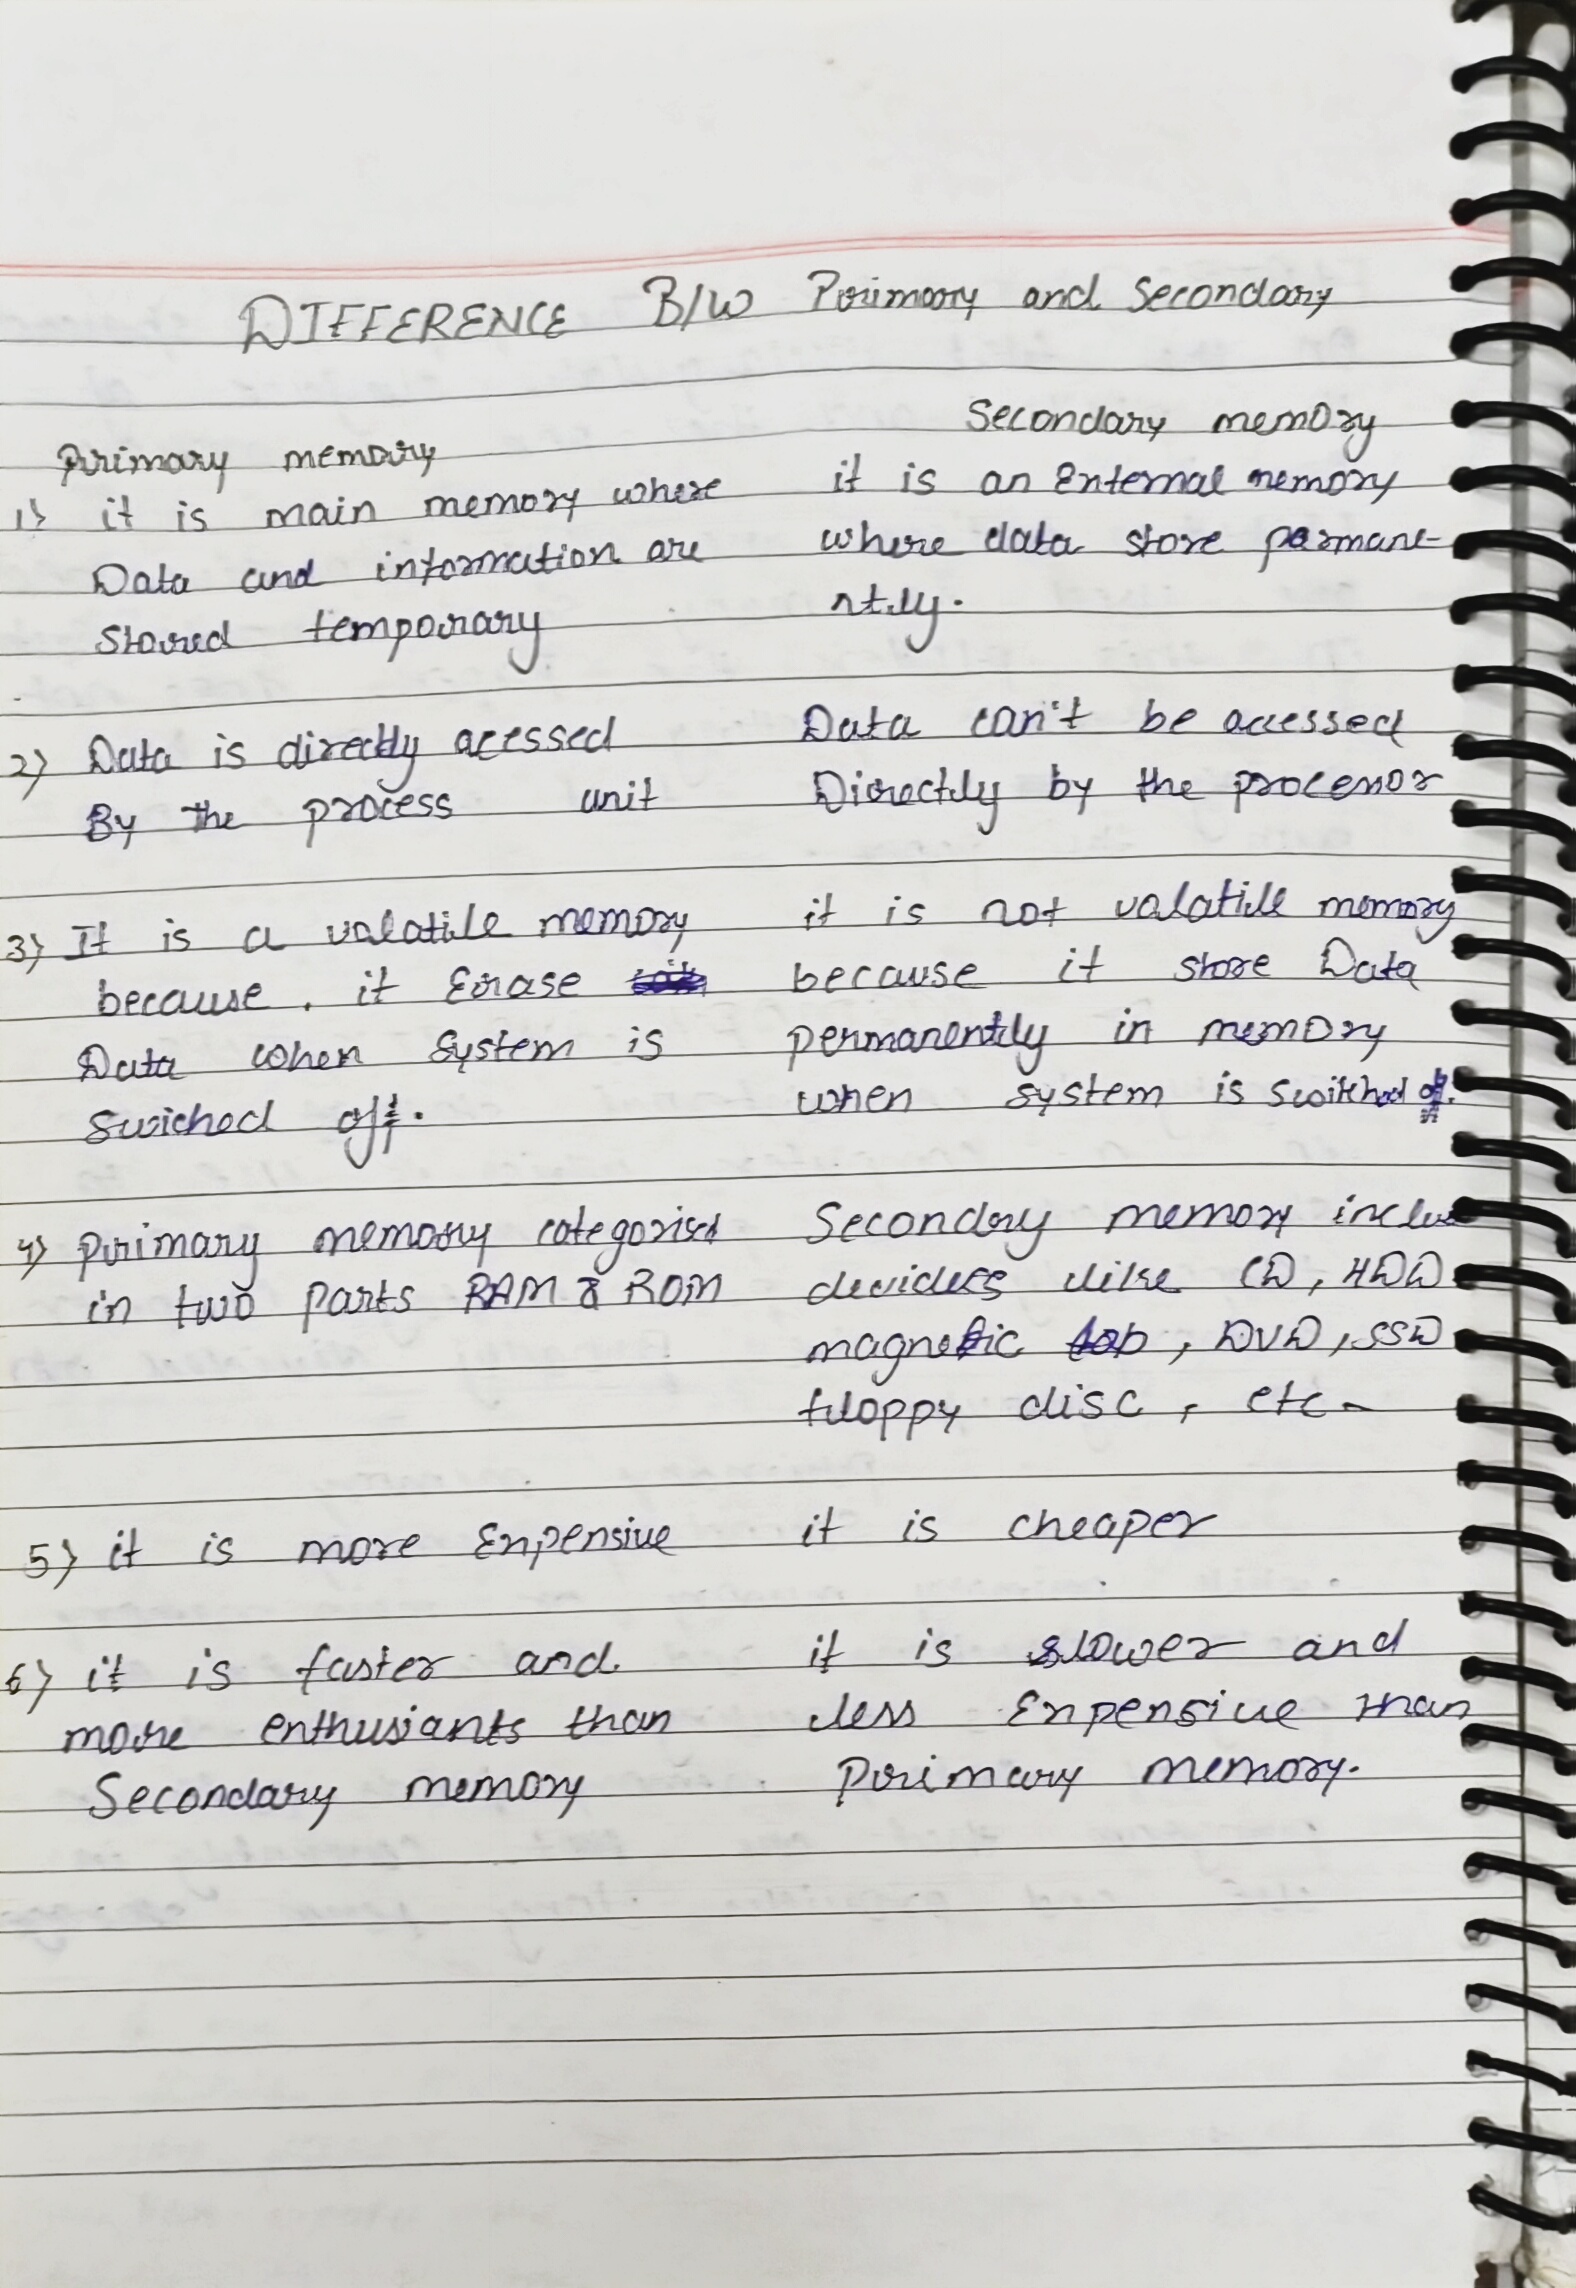 DIFFERENCE B/W Primary and Secondary
Primary memory
Secondary memory
1) it is main memory where
Data and information are
stored temporary
it is an External memory
where data store permane-
ntly.
2) Data is directly acessed
By the process unit
Data can't be accessed
Directly by the processor
3) It is a valatile memory
because, it Erase
Data when system is
swiched off.
it is not valatile memory
because it store Data
permanently in memory
when system is switched off.
4) primary memory categorised
in two parts RAM & ROM
Secondary memory include
like CD, HDD
magnetic, DVD, SSD
floppy disc, etc.
5) it is more Expensive
it is cheaper
6) it is faster and
more than
Secondary memory
it is slower and
less Expensive than
primary memory.